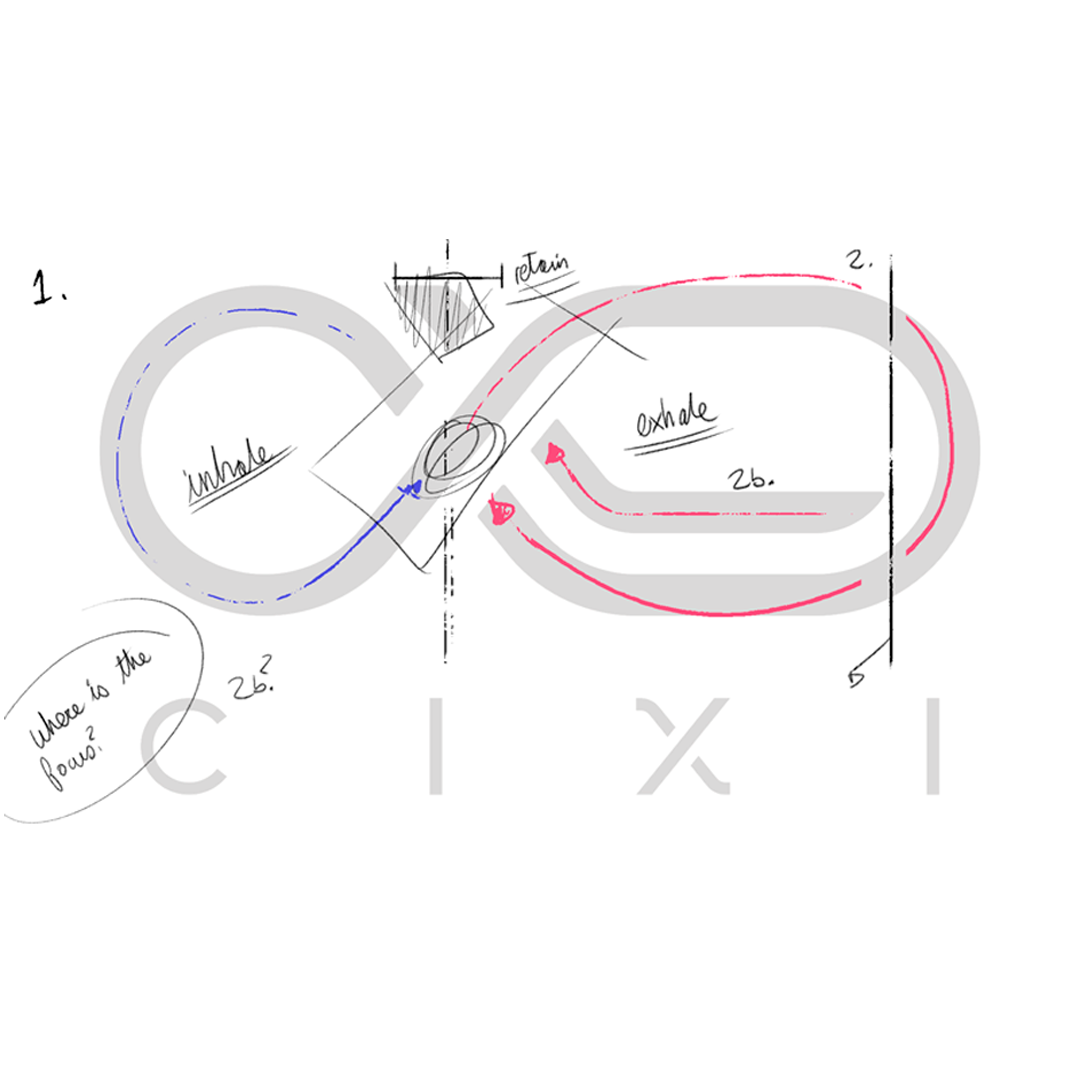 1.
retain
2.
inhale
exhale
2b.
where is the
focus?
2b?
CIXI